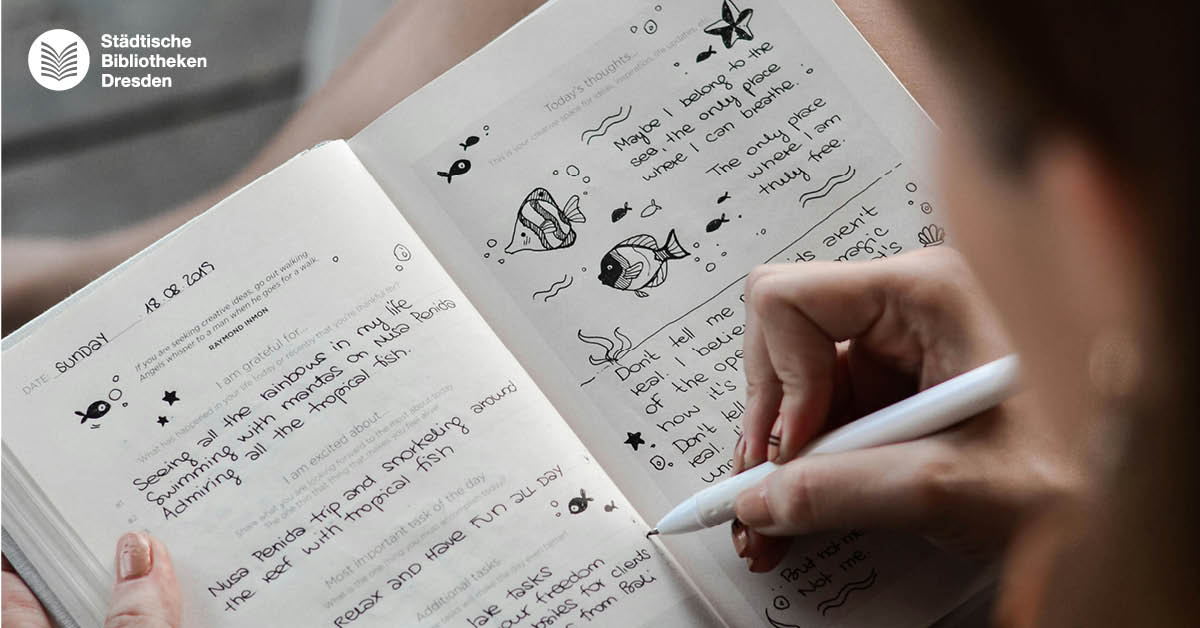 Städtische
Bibliotheken
Dresden
DATE: SUNDAY 18.08.2019
If you are seeking creative ideas, go out walking
Angels whisper to a man when he goes for a walk.
RAYMOND INMON
I am grateful for...
What has happened in your life today or recently that you're thankful for?
Seeing all the rainbows in my life
Swimming with mantas on Nusa Penida
Admiring all the tropical fish.
I am excited about...
Share what you are looking forward to the most about today
The one thing that makes you feel alive!
Nusa Penida trip and snorkeling around
the reef with tropical fish
Most important task of the day
What is the one thing you must accomplish today?
RELAX AND HAVE FUN ALL DAY
Additional tasks
will make the day even better!
tasks
our freedom
for clients
from Bali
Today's thoughts...
This is your creative space for ideas, inspiration, life updates,
Maybe I belong to the
sea, the only place
where I can breathe.
The only place
where I am
truly free.
aren't
magic
Don't tell me
real. I
of the
how it's
Don't
real
But not me.
Not me.